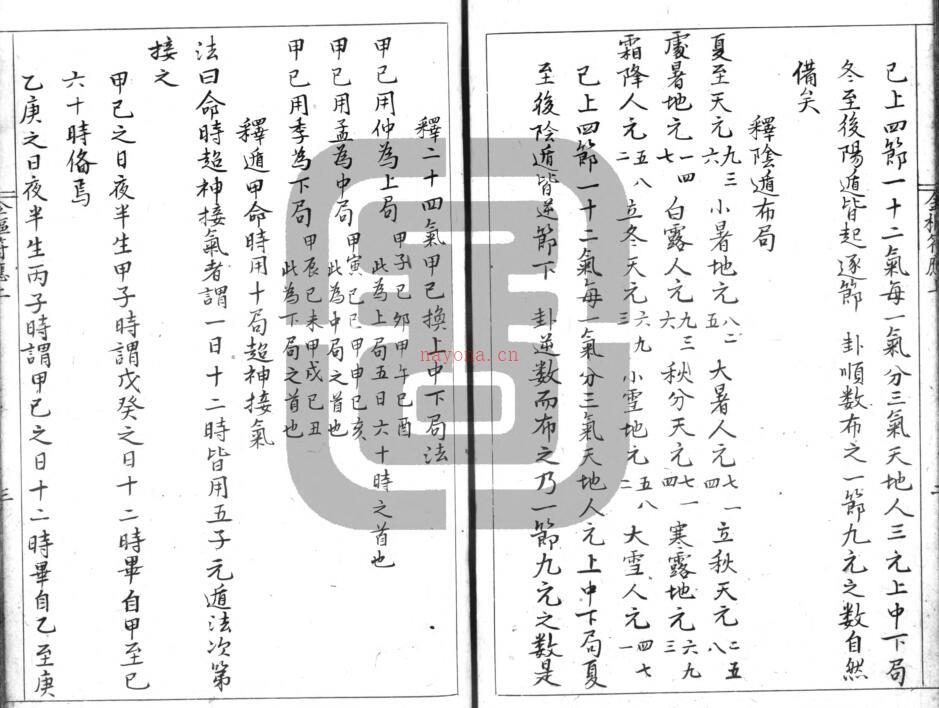 已上四節一十二氣每一氣分三氣天地人三元上中下局
冬至後陽遁皆起逐節 卦順數布之一節九元之數自然
備矣
釋陰遁布局
夏至天元九三六 小暑地元八二五 大暑人元七一四 立秋天元二五八
處暑地元一四七 白露人元九三六 秋分天元七一四 寒露地元六九三
霜降人元五八二 立冬天元六九三 小雪地元五八二 大雪人元四七一
已上四節一十二氣每一氣分三氣天地人元上中下局夏
至後陰遁皆逆節下 卦逆数而布之乃一節九元之数是
釋二十四氣甲已換上中下局法
甲已用仲為上局 甲子已夘甲午已酉 此為上局五日六十時之首也
甲已用孟為中局 甲寅已巳甲申已亥 此為中局之首也
甲已用季為下局 甲辰已未甲戌已丑 此為下局之首也
釋遁甲命時用十局超神接氣
法曰命時超神接氣者謂一日十二時皆用五子元遁法次第
接之
甲已之日夜半生甲子時謂戊癸之日十二時畢自甲至已
六十時俻焉
乙庚之日夜半生丙子時謂甲已之日十二時畢自乙至庚
三
nayona.cn